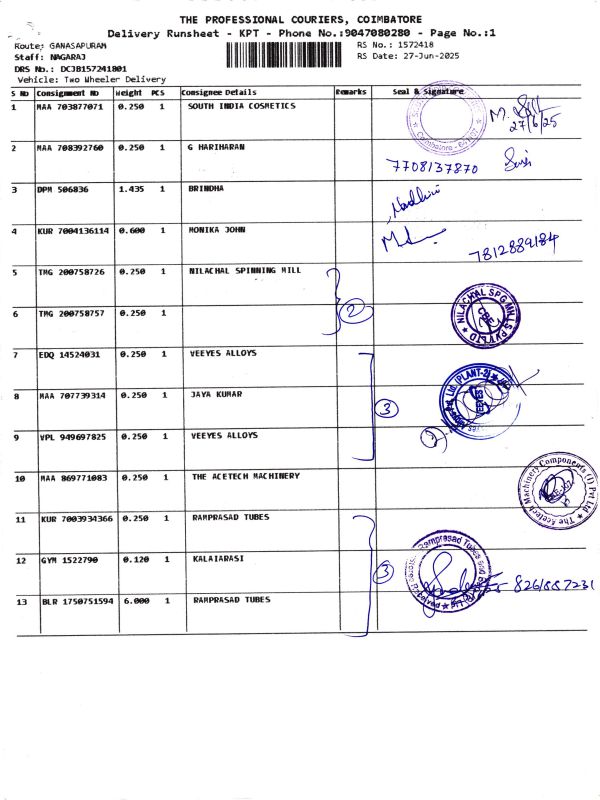 THE PROFESSIONAL COURIERS, COIMBATORE
Delivery Runsheet - KPT - Phone No.:9047080280 - Page No.:1
Route: GANASAPURAM
RS No.: 1572418
Staff: NAGARAJ
RS Date: 27-Jun-2025
DRS No.: DCJB157241801
Vehicle: Two Wheeler Delivery
S No Consignment No Weight PCS Consignee Details Remarks Seal & Signature
1 MAA 703877071 0.250 1 SOUTH INDIA COSMETICS
27/6/25
2 MAA 708392760 0.250 1 G HARIHARAN
7708137870
3 DPM 506836 1.435 1 BRINDHA
4 KUR 7004136114 0.600 1 MONIKA JOHN
7812889184
5 TMG 200758726 0.250 1 NILACHAL SPINNING MILL
2
NILACHAL SPG MILLS PVT LTD
CBE
6 TMG 200758757 0.250 1
7 EDQ 14524031 0.250 1 VEEYES ALLOYS
8 MAA 707739314 0.250 1 JAYA KUMAR
3
(PLANT-2)
9 VPL 949697825 0.250 1 VEEYES ALLOYS
2
10 MAA 869771083 0.250 1 THE ACETECH MACHINERY
The Acetech Machinery Components (I) Pvt Ltd
11 KUR 7003934366 0.250 1 RAMPRASAD TUBES
12 GYM 1522790 0.120 1 KALAIARASI
3
Ramprasad Tubes and
13 BLR 1750751594 6.000 1 RAMPRASAD TUBES